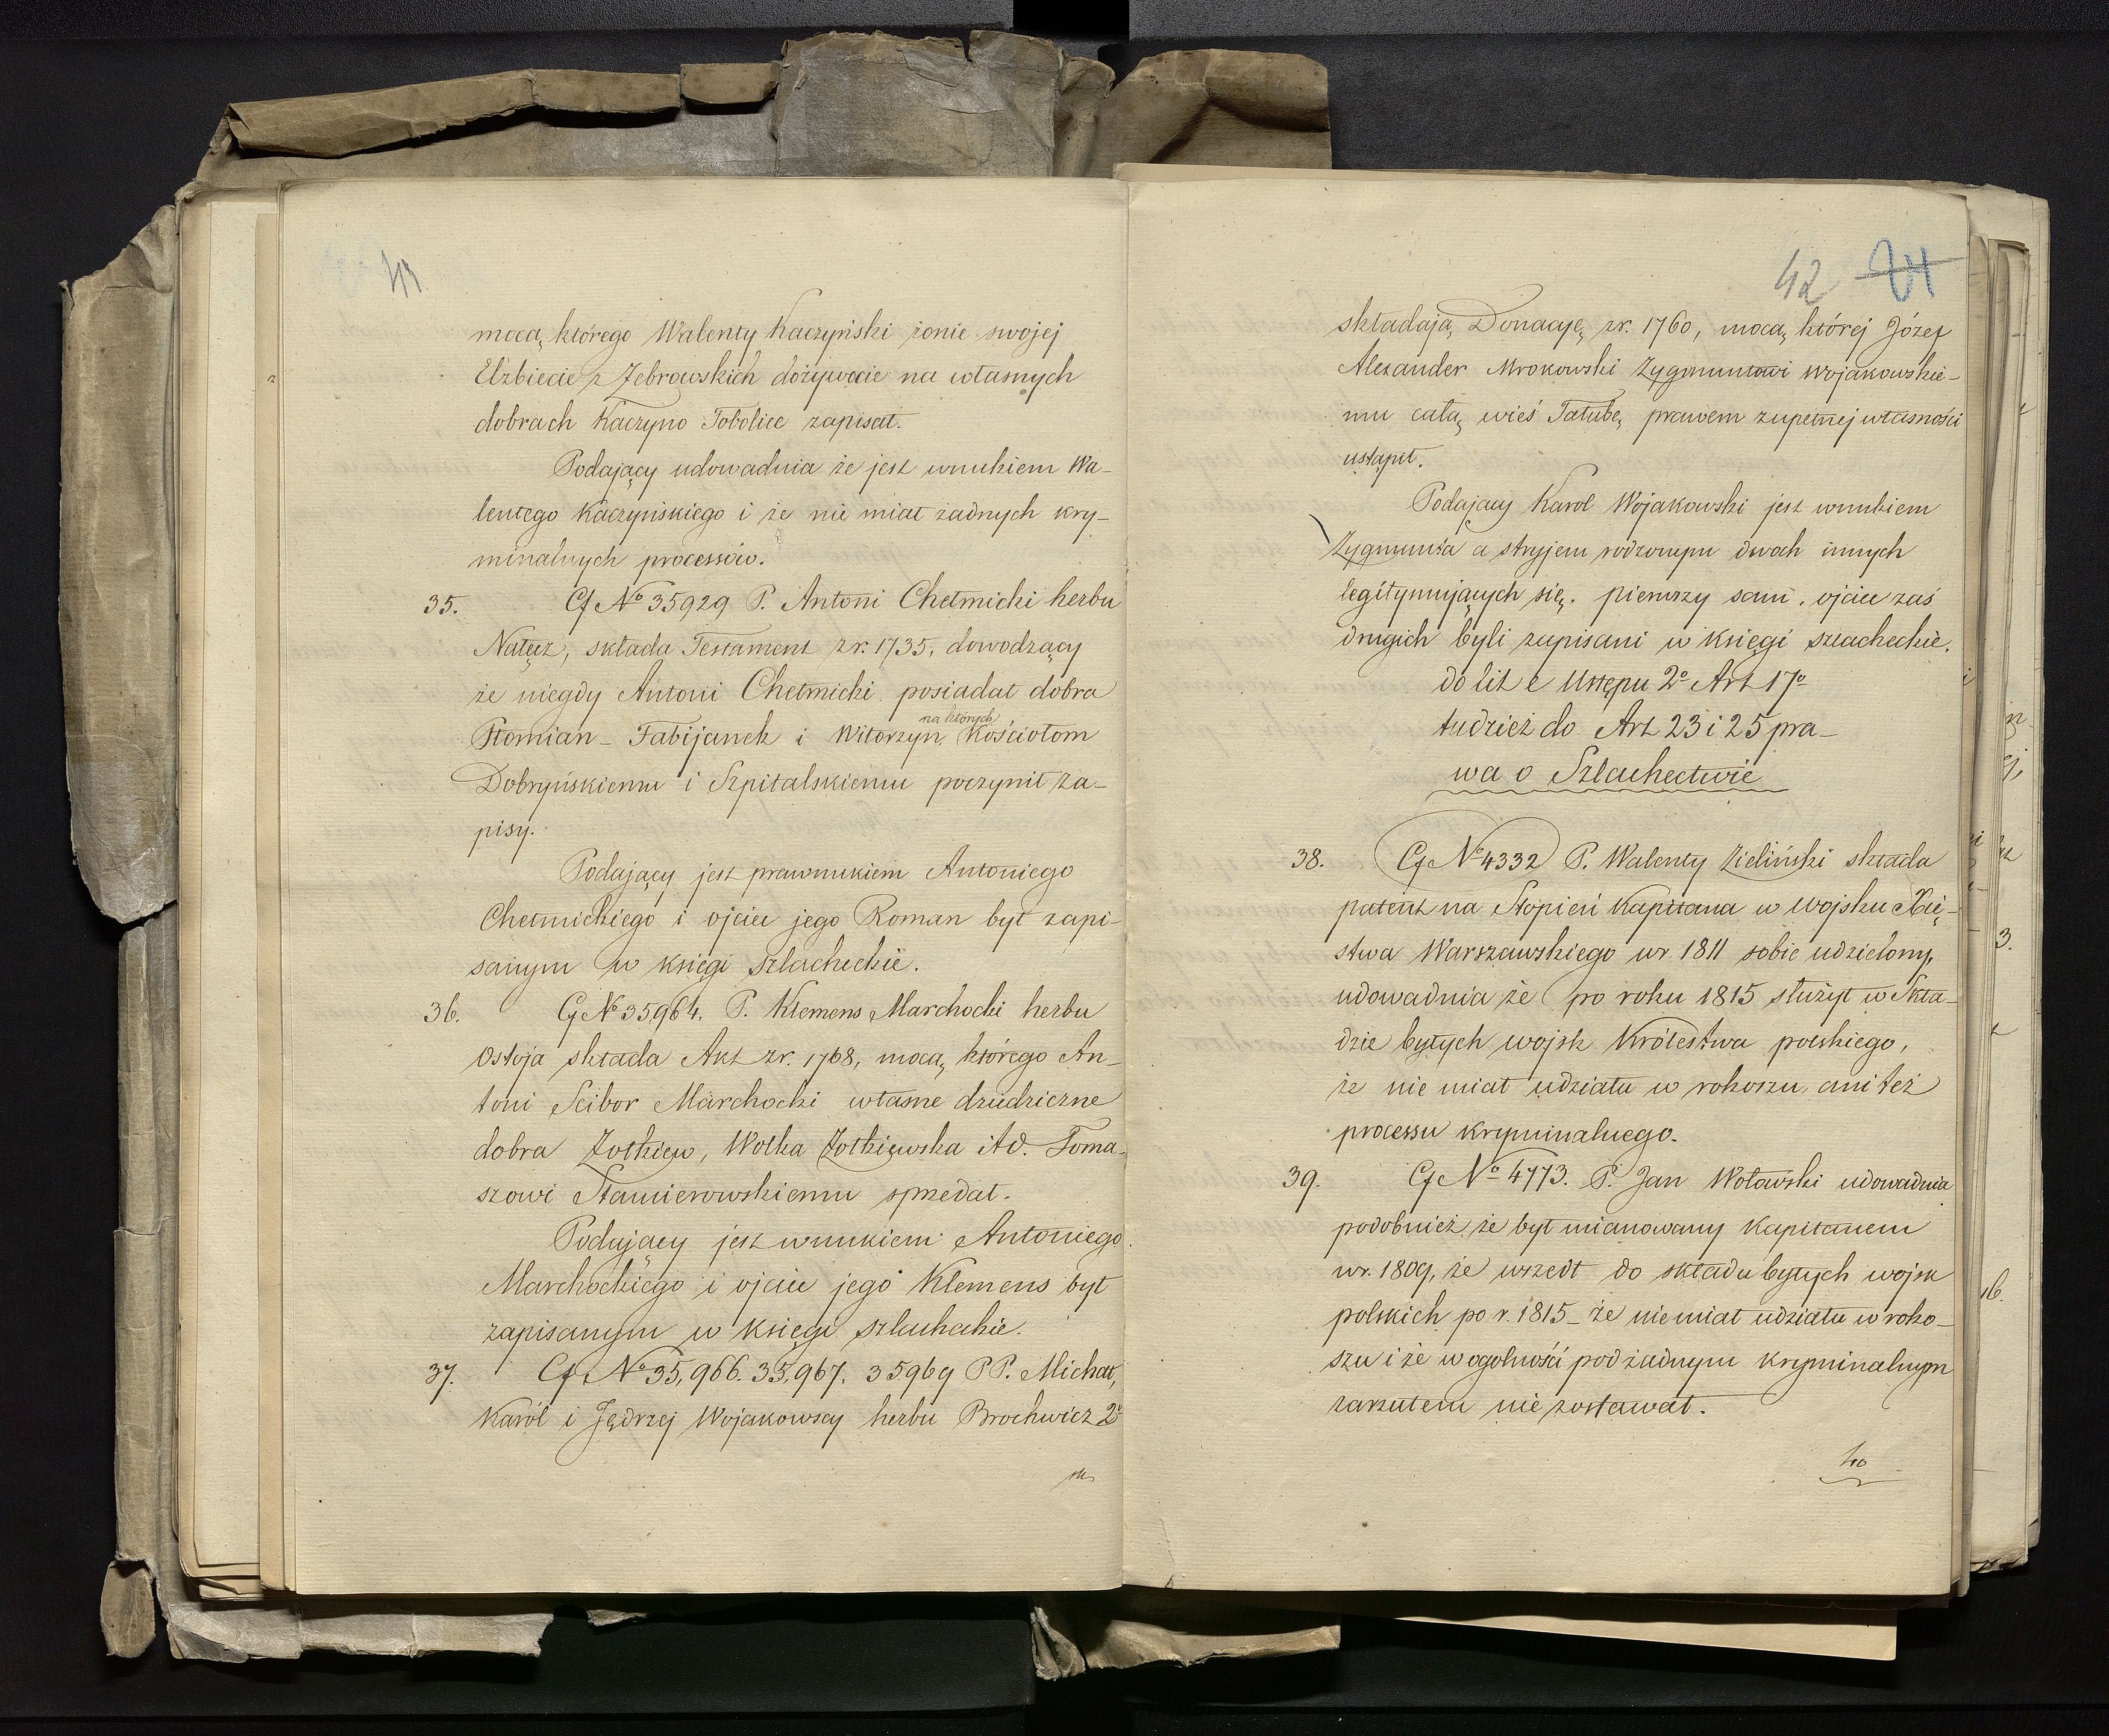 41
mocą którego Walenty Kaczyński żonie swojej
Elżbiecie z Żebrowskich dożywocie na własnych
dobrach Kaczyno Tobolice zapisał.
Podający udowadnia że jest wnukiem Wa-
lentego Kaczyńskiego i że nie miał żadnych kry-
minalnych processów.
35. Cf No 35929 P. Antoni Chełmicki herbu
Nałęcz, składa Testament z r. 1735, dowodzący
że niegdy Antoni Chełmicki posiadał dobra
na których
Płomian - Fabijanek i Witorzyn, Kościołom
Dobrzyńskiemu i Szpitalskiemu poczynił za-
pisy.
Podający jest prawnukiem Antoniego
Chełmickiego i ojciec jego Roman był zapi-
sanym w księgi szlacheckie.
36. Cf No 35,964. P. Klemens Marchocki herbu
Ostoja składa Akt z r. 1768, mocą którego An-
toni Scibor Marchocki własne dziedziczne
dobra Żołkiew, Wolka Żołkiewska itd. Toma-
szowi Stamierowskiemu sprzedał.
Podający jest wnukiem Antoniego
Marchockiego i ojciec jego Klemens był
zapisanym w księgi szlacheckie.
37. Cf No 35,966. 35,967. 35969 PP. Michał,
Karól i Jędrzej Wojakowscy herbu Brochwicz 2o
42 21
składają Donacyę z r. 1760, mocą której Józef
Alexander Mrokowski Zygmuntowi Wojakowskie-
mu całą wieś Tatubę, prawem zupełnej własności
ustąpił.
Podający Karol Wojakowski jest wnukiem
Zygmunta a stryjem rodzonym dwóch innych
legitymujących się. pierwszy sam, ojciec zaś
drugich byli zapisani w księgi szlacheckie.
do lit e Ustępu 2o Art 17o
tudzież do Art 23 i 25 pra-
wa o Szlachectwie
38. Cf No 4332 P. Walenty Zieliński składa
patent na Stopień Kapitana w Wojsku Xię-
stwa Warszawskiego w r 1811 sobie udzielony,
udowadnia że po roku 1815 służył w Skła-
dzie byłych wojsk Królestwa polskiego,
że nie miał udziału w rokoszu, ani też
processu kryminalnego.
39. Cf No 4773. P. Jan Wołowski udowadnia
podobnież że był mianowany Kapitanem
w r. 1809, że wszedł do składu byłych wojsk
polskich po r. 1815 - że nie miał udziału w roko-
szu i że w ogólności pod żadnym kryminalnym
zarzutem nie zostawał.
40